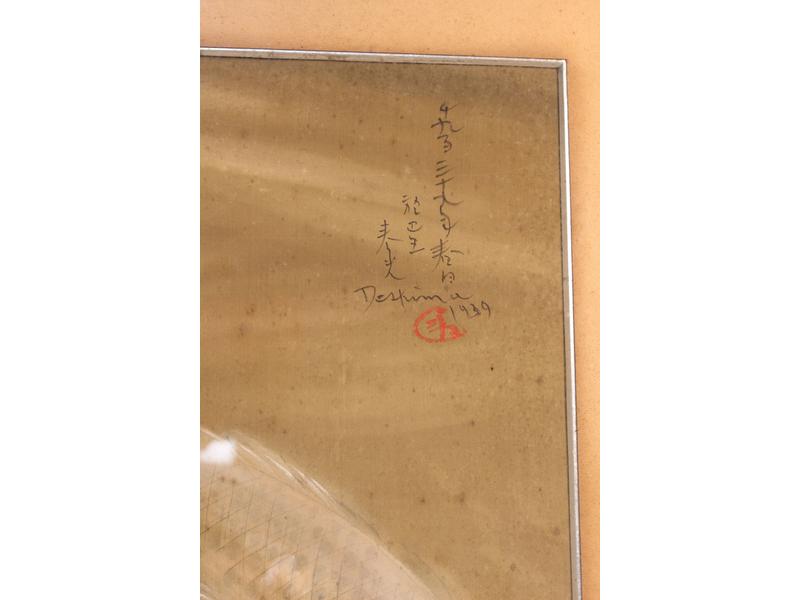 千九百三十九年春日
於巴里
春光
Deshima
1939